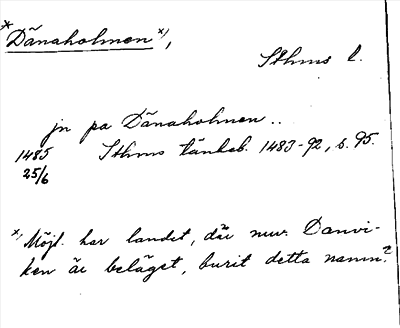 *Dänaholmen x),
Sthms l.
jn pa Dänaholmen ..
1485 Sthms tänkeb. 1483-92, s. 95.
25/6
x) Möjl. har landet, där nuv. Danvi-
ken är beläget, burit detta namn?